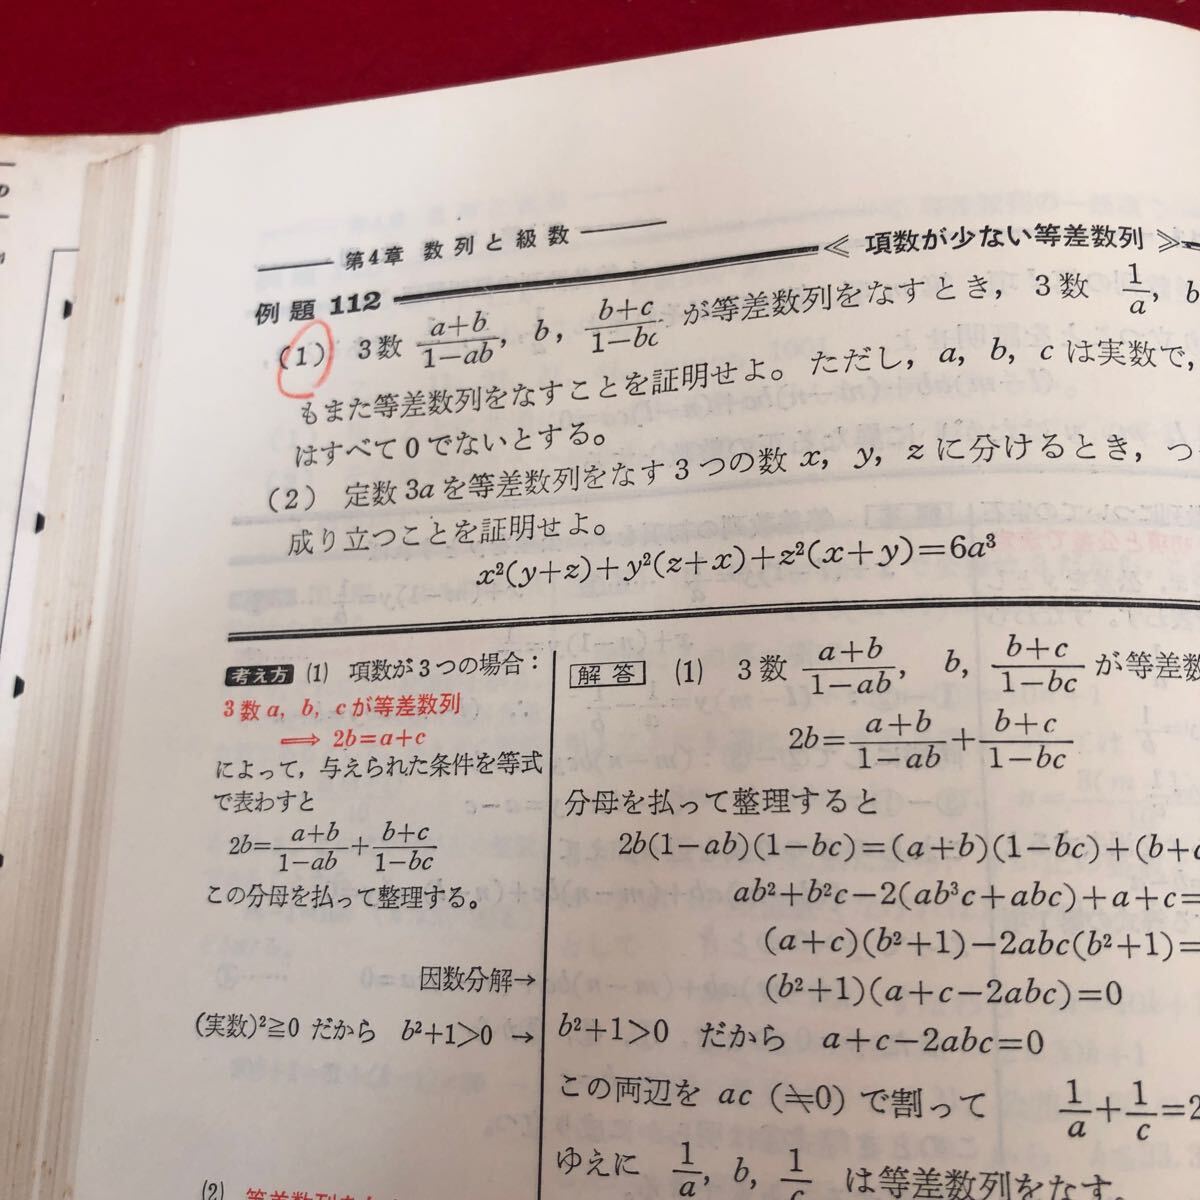 第4章 数列と級数
例題 112 ≪ 項数が少ない等差数列 ≫
(1) 3数 (a+b)/(1-ab), b, (b+c)/(1-bc) が等差数列をなすとき, 3数 1/a, b
もまた等差数列をなすことを証明せよ。ただし, a, b, c は実数で,
はすべて0でないとする。
(2) 定数3aを等差数列をなす3つの数 x, y, z に分けるとき, つ
成り立つことを証明せよ。
x²(y+z)+y²(z+x)+z²(x+y)=6a³
考え方 (1) 項数が3つの場合:
3数 a, b, c が等差数列
⟹ 2b=a+c
によって, 与えられた条件を等式
で表わすと
2b=(a+b)/(1-ab)+(b+c)/(1-bc)
この分母を払って整理する。
因数分解→
(実数)²≧0 だから b²+1>0 →
(2)
解答 (1) 3数 (a+b)/(1-ab), b, (b+c)/(1-bc) が等差数
2b=(a+b)/(1-ab)+(b+c)/(1-bc)
分母を払って整理すると
2b(1-ab)(1-bc)=(a+b)(1-bc)+(b+c
ab²+b²c-2(ab³c+abc)+a+c=
(a+c)(b²+1)-2abc(b²+1)=
(b²+1)(a+c-2abc)=0
b²+1>0 だから a+c-2abc=0
この両辺を ac (≠0) で割って 1/a+1/c=2
ゆえに 1/a, b, 1/c は等差数列をなす.